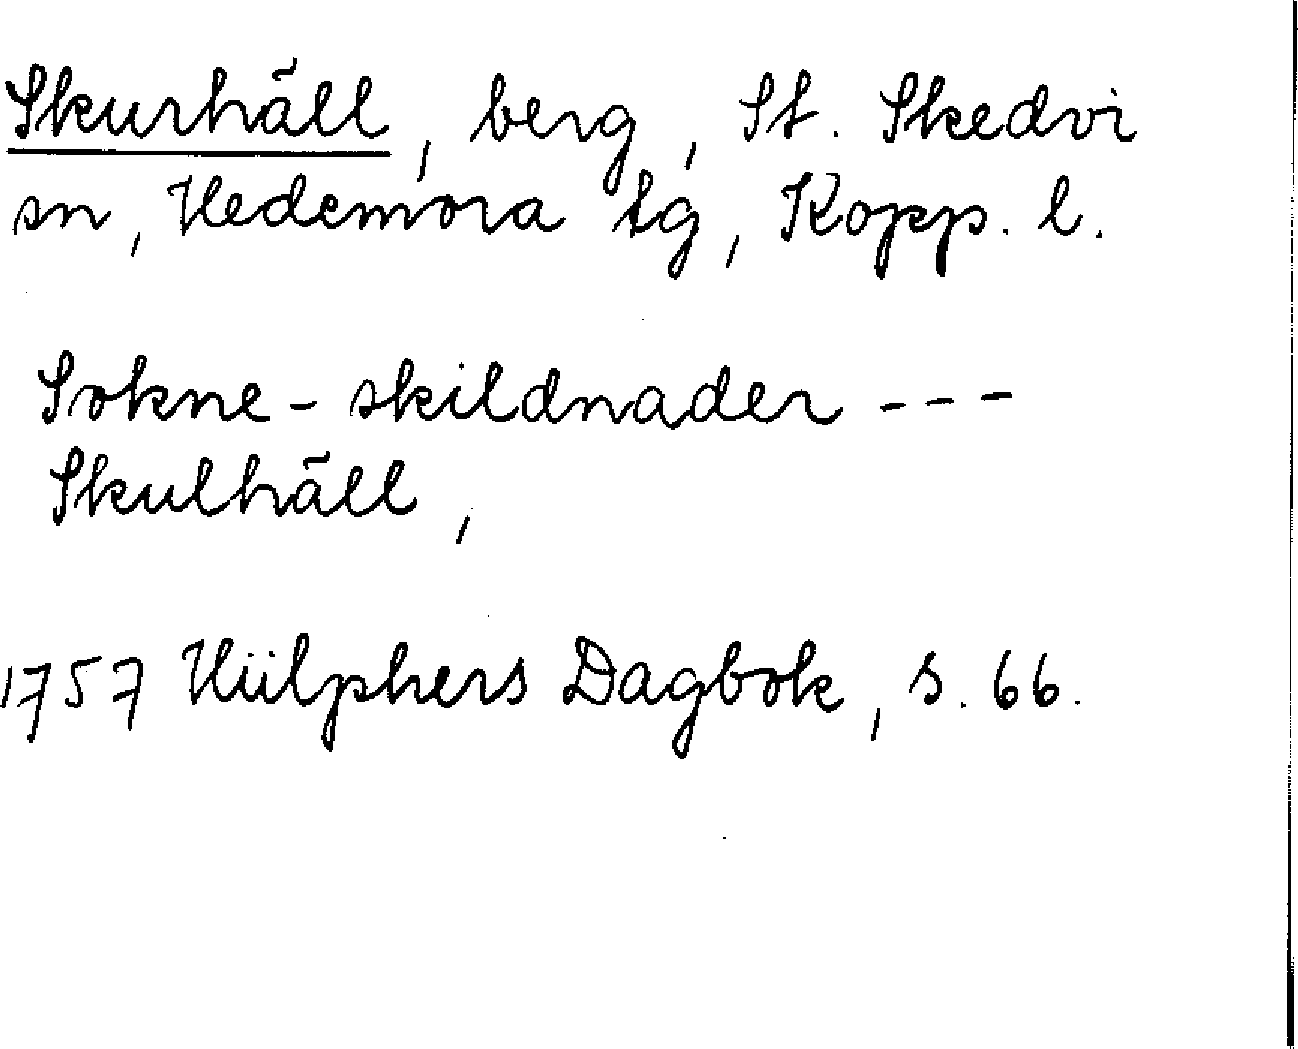 Skurhäll, berg, St. Skedvi
sn, Hedemora tg, Kopp. l.
Sokne-skildnader ---
Skulhäll,
1757 Hülphers Dagbok, s. 66.